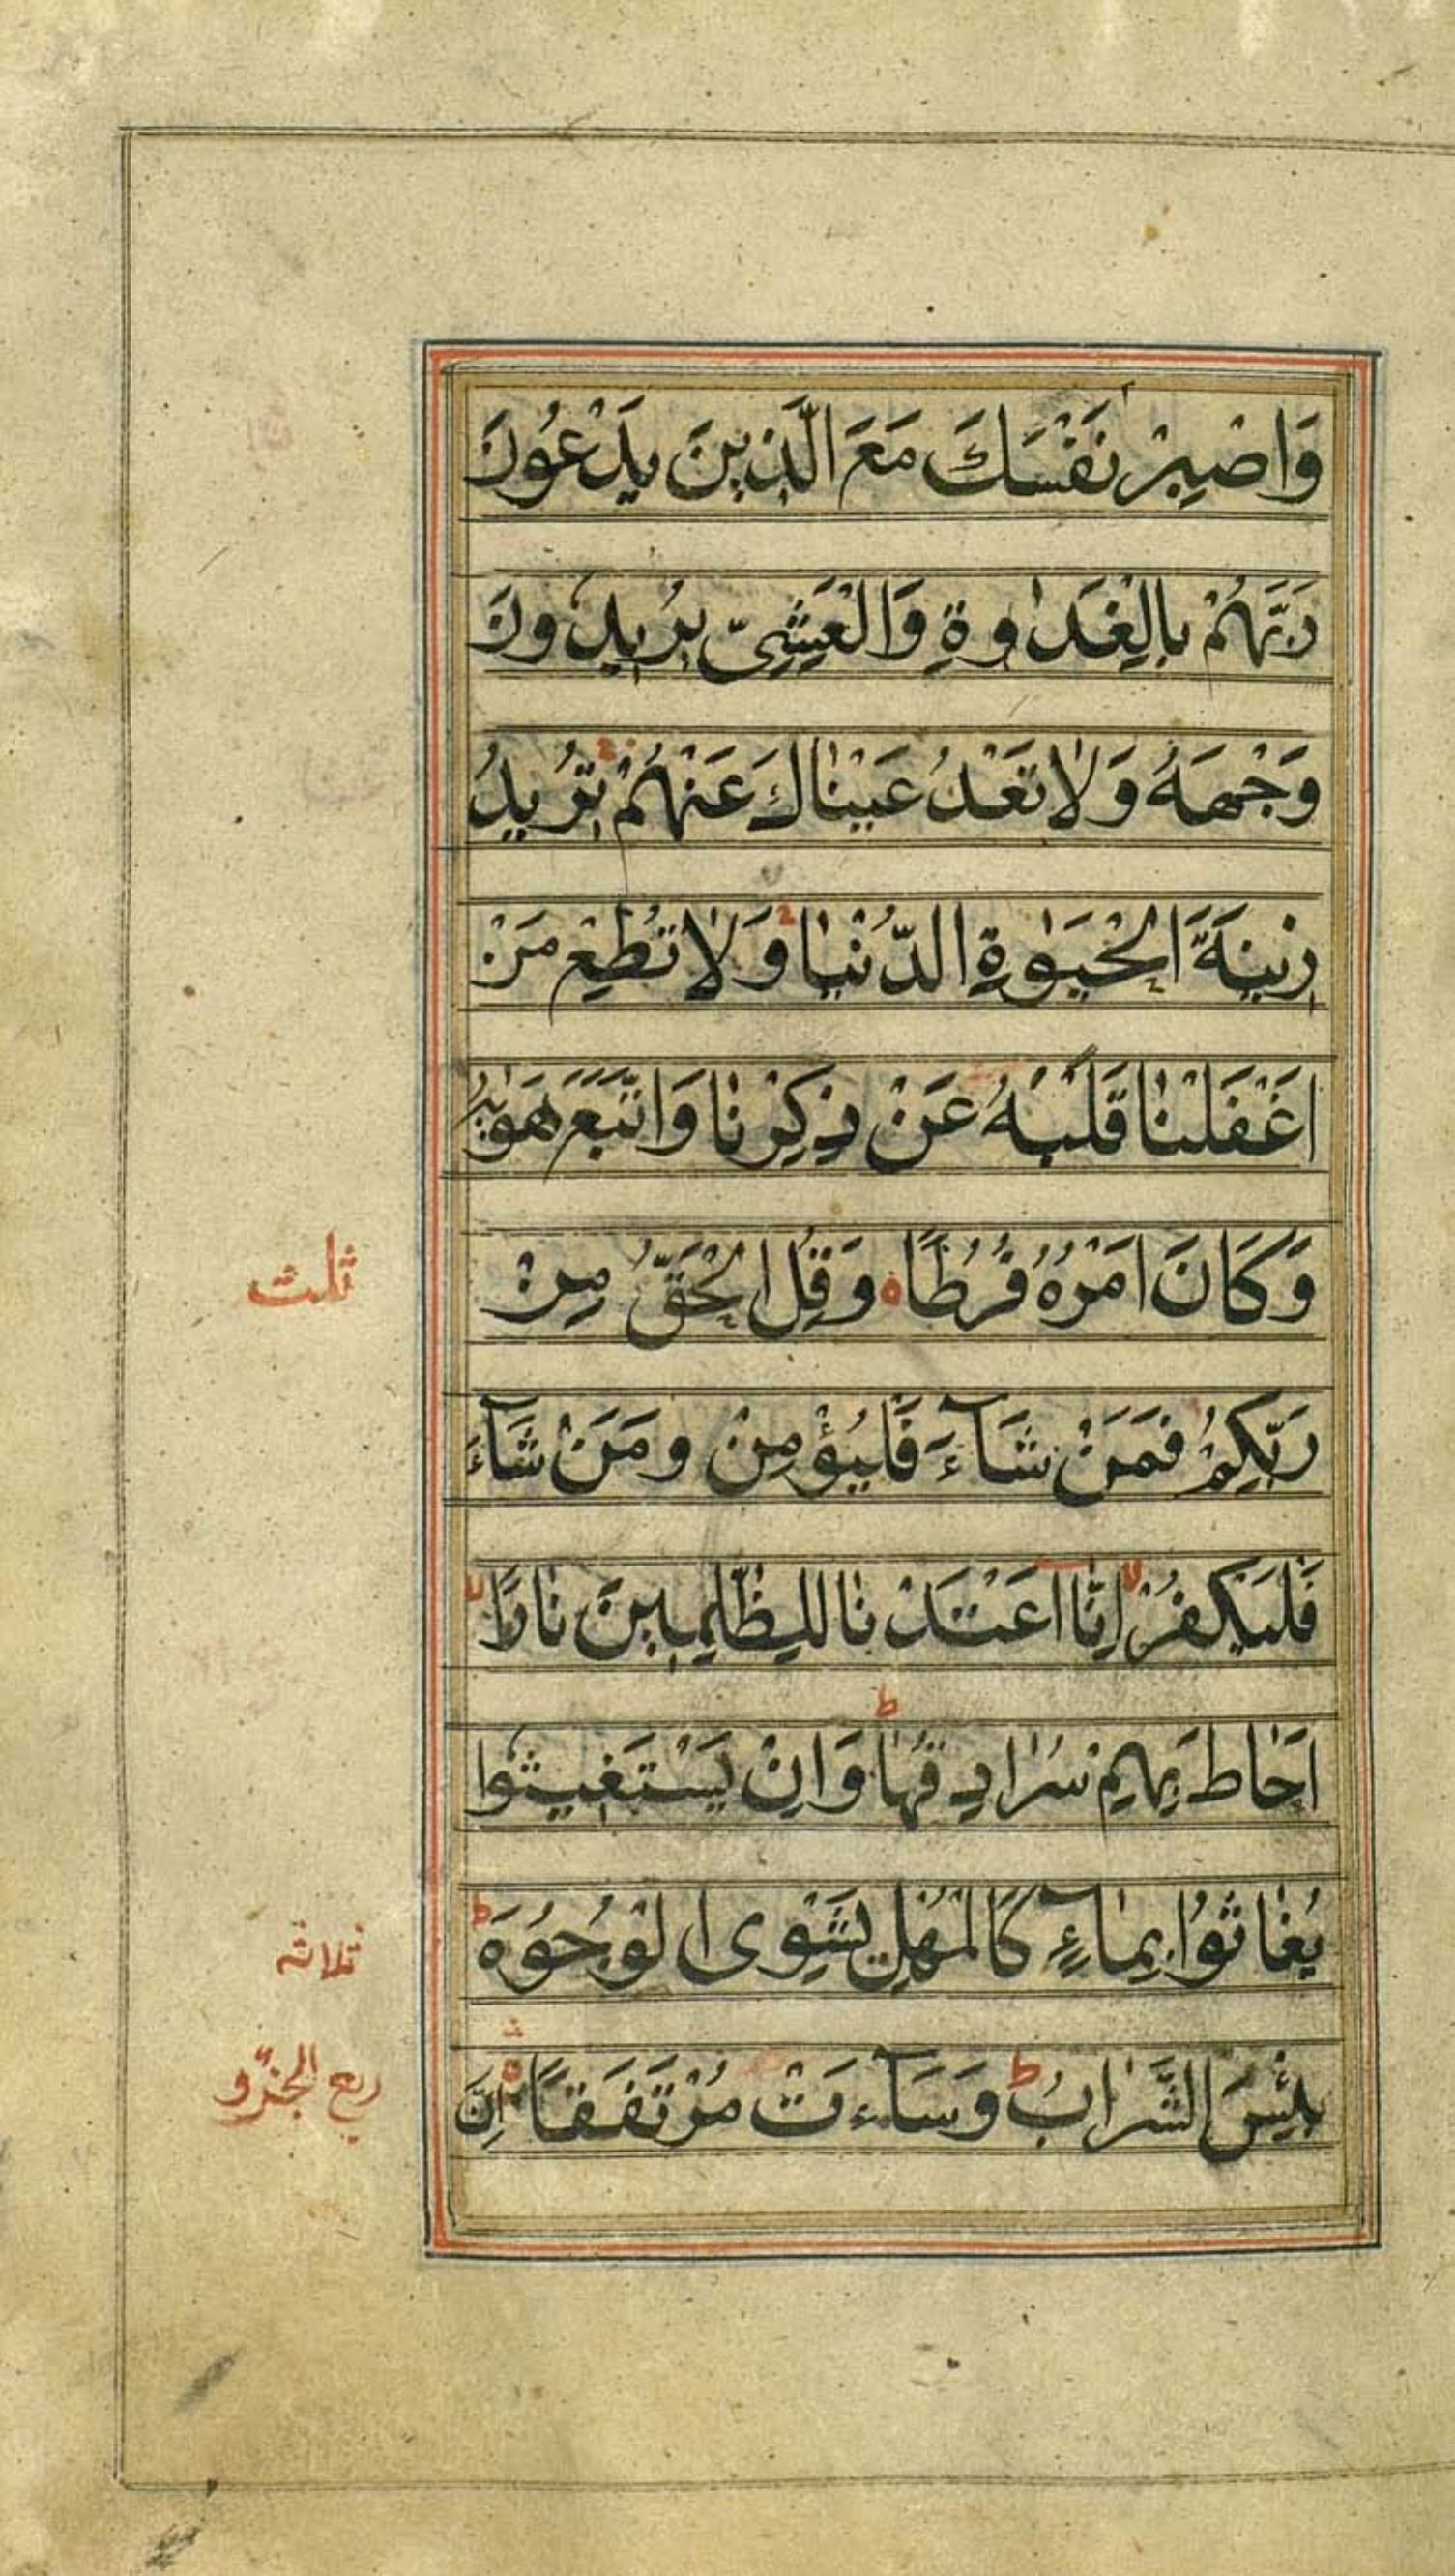 وَاصْبِرْ نَفْسَكَ مَعَ الَّذِينَ يَدْعُونَ
رَبَّهُمْ بِالْغَدٰوةِ وَالْعَشِيِّ يُرِيدُونَ
وَجْهَهُ وَلَا تَعْدُ عَيْنَاكَ عَنْهُمْ تُرِيدُ
زِينَةَ الْحَيَوٰةِ الدُّنْيَا وَلَا تُطِعْ مَنْ
اَغْفَلْنَا قَلْبَهُ عَنْ ذِكْرِنَا وَاتَّبَعَ هَوٰيهُ
وَكَانَ اَمْرُهُ فُرُطًا ه وَقُلِ الْحَقُّ مِنْ
ثلث
رَبِّكُمْ فَمَنْ شَآءَ فَلْيُؤْمِنْ وَمَنْ شَآءَ
فَلْيَكْفُرْ لا اِنَّا اَعْتَدْنَا لِلظّٰلِمِينَ نَارًا لا
اَحَاطَ بِهِمْ سُرَادِقُهَا ط وَاِنْ يَسْتَغِيثُوا
يُغَاثُوا بِمَآءٍ كَالْمُهْلِ يَشْوِى الْوُجُوهَ ط
ثلاثة
بِئْسَ الشَّرَابُ ط وَسَآءَتْ مُرْتَفَقًا ه اِنَّ
ربع الجزؤ